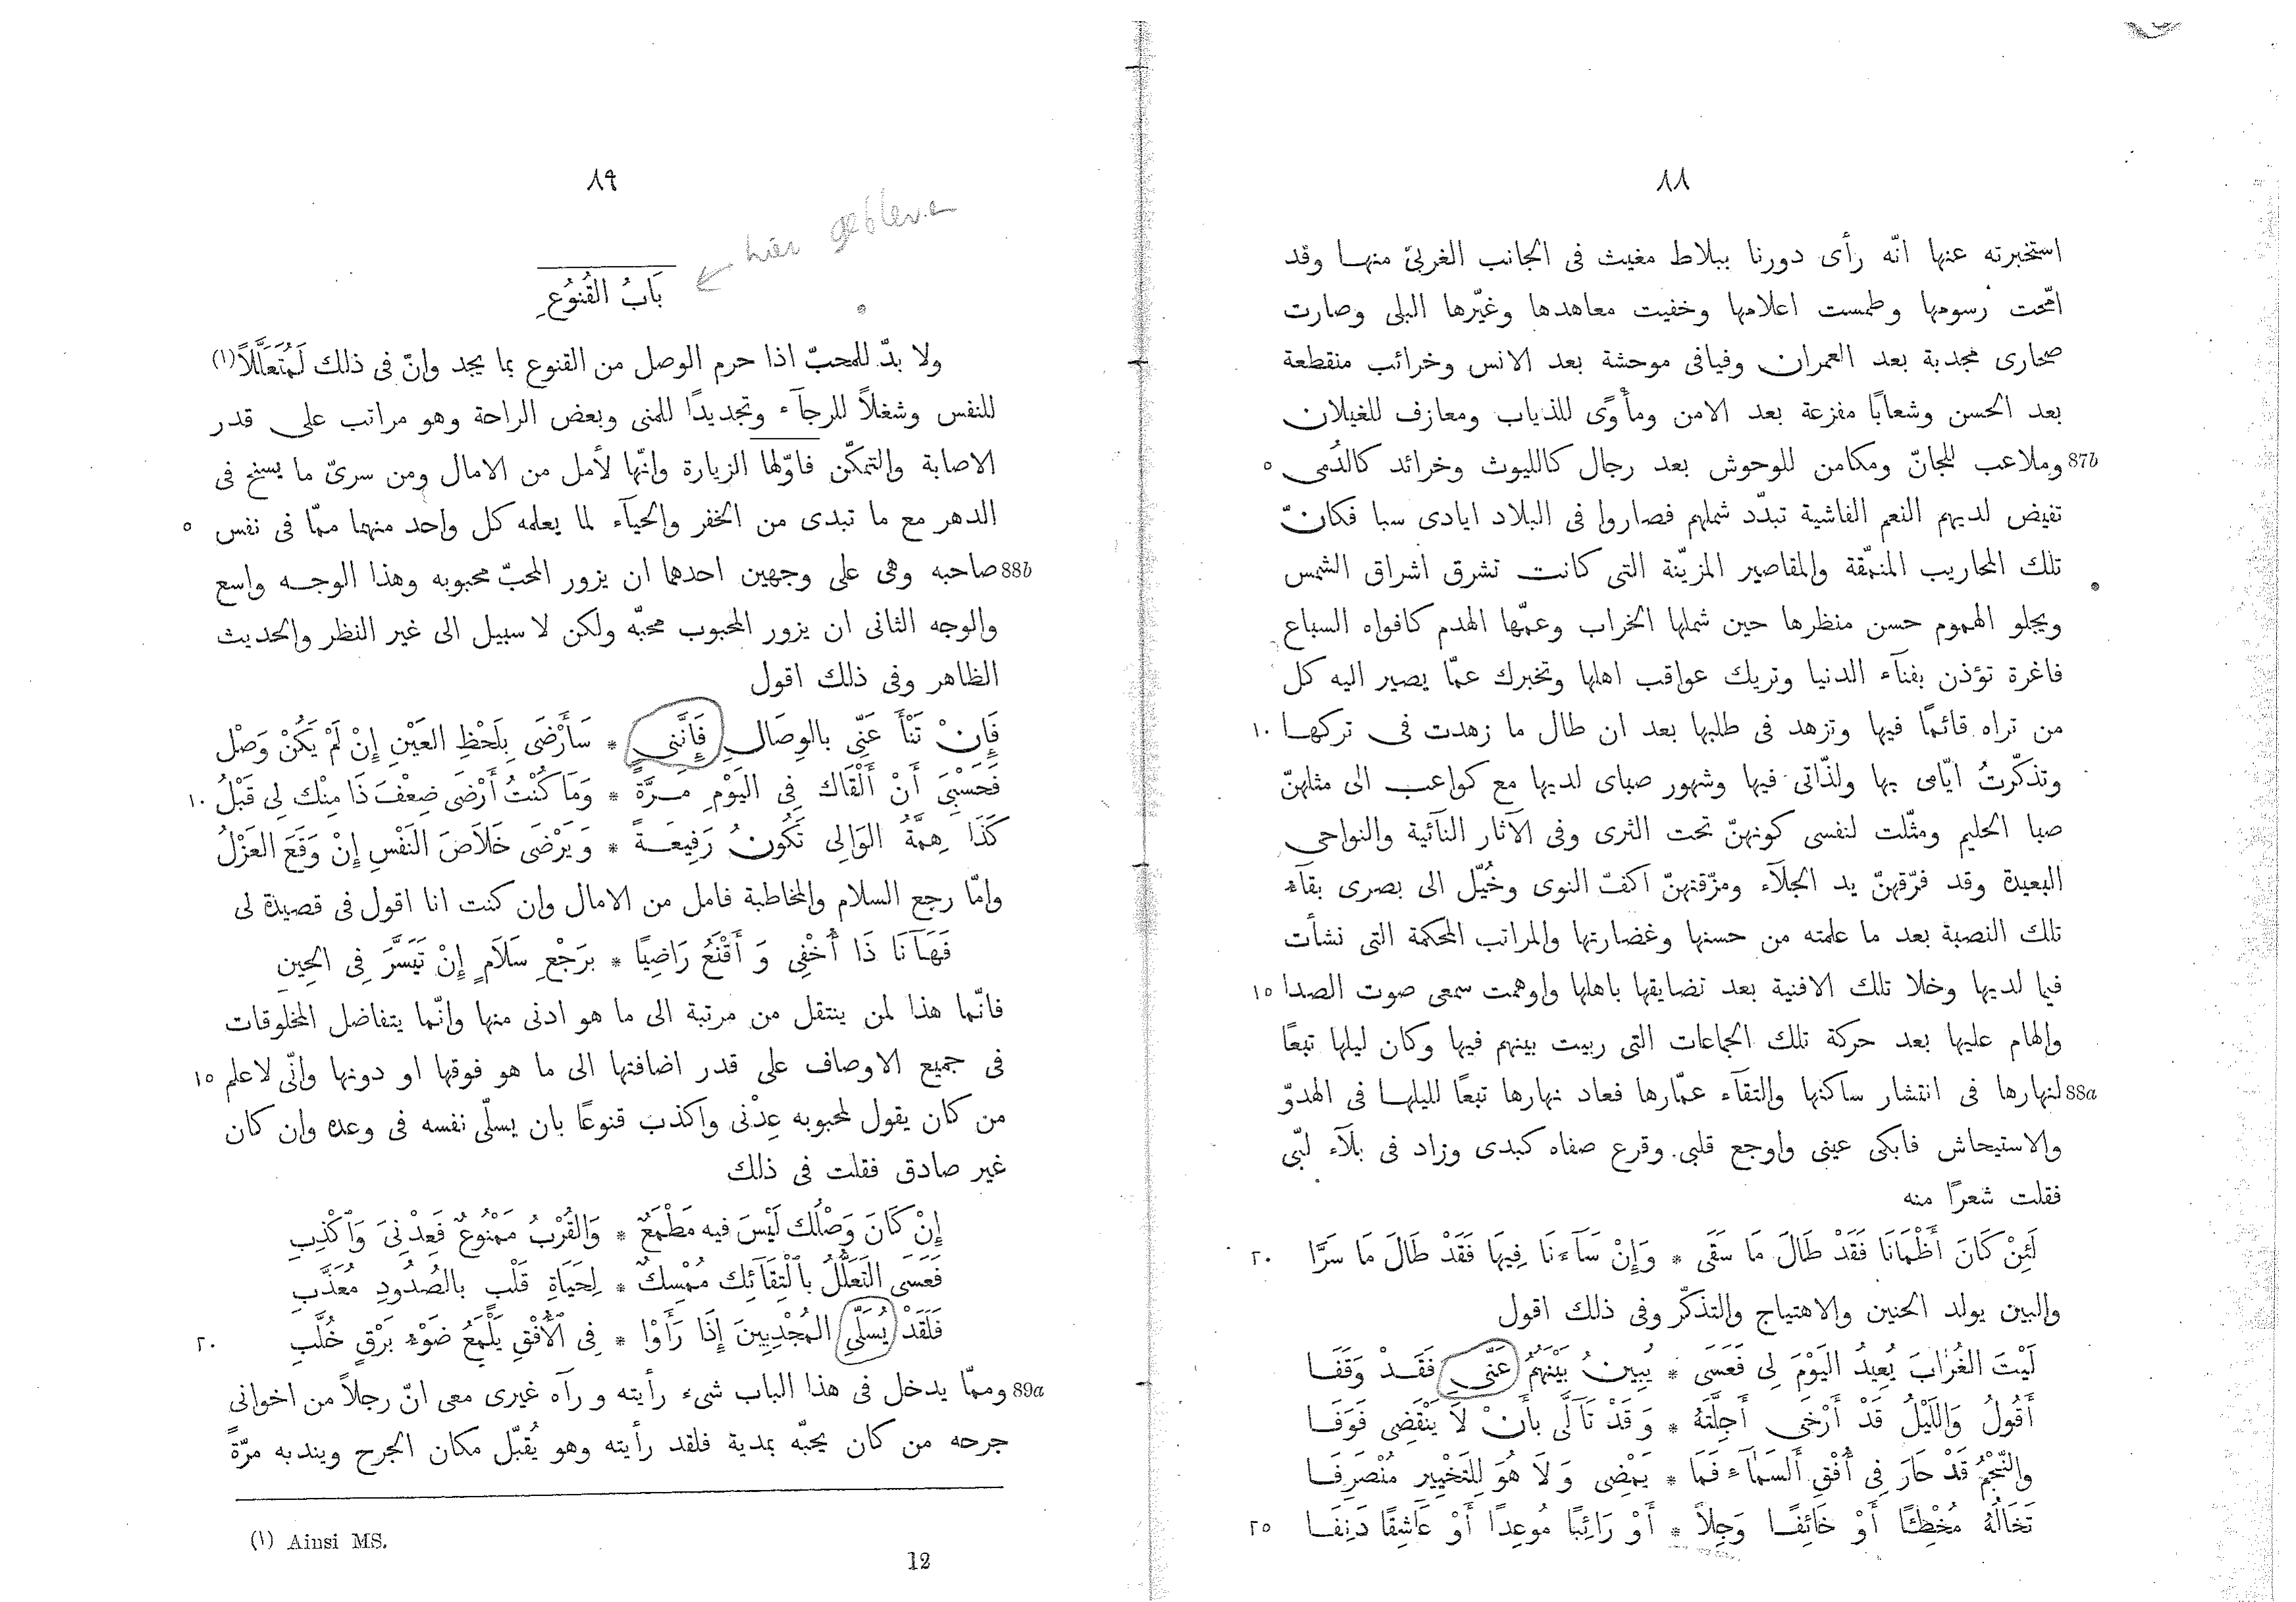 ٨٨
استخبرته عنها انّه رأى دورنا ببلاط مغيث فى الجانب الغربىّ منها وقد
امّحت رسومها وطمست اعلامها وخفيت معاهدها وغيّرها البلى وصارت
صحارى مجدبة بعد العمران وفيافى موحشة بعد الانس وخرائب منقطعة
بعد الحسن وشعابًا مفزعة بعد الامن ومأوًى للذياب ومعازف للغيلان
87b وملاعب للجانّ ومكامن للوحوش بعد رجال كالليوث وخرائد كالدُمى ٥
تفيض لديهم النعم الفاشية تبدّد شملهم فصاروا فى البلاد ايادى سبا فكانّ
تلك المحاريب المنمّقة والمقاصير المزيّنة التى كانت تشرق اشراق الشمس
ويجلو الهموم حسن منظرها حين شملها الخراب وعمّها الهدم كافواه السباع
فاغرة تؤذن بفنآء الدنيا وتريك عواقب اهلها وتخبرك عمّا يصير اليه كل
من تراه قائمًا فيها وتزهد فى طلبها بعد ان طال ما زهدت فى تركها ١٠
وتذكّرتُ ايّامى بها ولذّاتى فيها وشهور صباى لديها مع كواعب الى مثلهنّ
صبا الحليم ومثّلت لنفسى كونهنّ تحت الثرى وفى الآثار النآئية والنواحى
البعيدة وقد فرّقهنّ يد الجلآء ومزّقتهنّ اكفّ النوى وخُيّل الى بصرى بقآء
تلك النصبة بعد ما علمته من حسنها وغضارتها والمراتب المحكمة التى نشأت
فيما لديها وخلا تلك الافنية بعد تضايقها باهلها واوهمت سمعى صوت الصدا ١٥
والهام عليها بعد حركة تلك الجماعات التى ربيت بينهم فيها وكان ليلها تبعًا
88a لنهارها فى انتشار ساكنها والتقآء عمّارها فعاد نهارها تبعًا لليلها فى الهدوّ
والاستيحاش فابكى عينى واوجع قلبى وقرع صفاه كبدى وزاد فى بلآء لبّى
فقلت شعرًا منه
لَئِنْ كَانَ أَظْمَانَا فَقَدْ طَالَ مَا سَقَى * وَإِنْ سَآءَنَا فِيهَا فَقَدْ طَالَ مَا سَرَّا ٢٠
والبين يولد الحنين والاهتياج والتذكّر وفى ذلك اقول
لَيْتَ الغُرَابَ يُعِيدُ اليَوْمَ لِى فَعَسَى * يُبِينُ بَيْنَهُمُ عَنِّى فَقَدْ وَقَفَا
أَقُولُ وَاللَيْلُ قَدْ أَرْخَى أَجِلَّتَهُ * وَقَدْ تَأَلَّى بأَنْ لاَ يَنْقَضِى فَوَفَا
والنَّجْمُ قَدْ حَارَ فِى أُفْقِ أَلسَمَآءِ فَمَا * يَمْضِى وَلاَ هُوَ لِلتَخْيِيرِ مُنْصَرِفَا
تَخَالُهُ مُخْطِئًا أَوْ خَائِفًا وَجِلاً * أَوْ رَائِبًا مُوعِدًا أَوْ عَاشِقًا دَنِفَا ٢٥
٨٩
hier gebleven
بَابُ القُنُوُعِ
ولا بدّ للمحبّ اذا حرم الوصل من القنوع بما يجد وانّ فى ذلك لَمُتَعَلَّلاً(١)
للنفس وشغلاً للرجآء وتجديدًا للمنى وبعض الراحة وهو مراتب على قدر
الاصابة والتمكّن فاوّلها الزيارة وانّها لأمل من الامال ومن سرىّ ما يسنح فى
الدهر مع ما تبدى من الخفر والحيآء لما يعلمه كل واحد منهما ممّا فى نفس ٥
88b صاحبه وهى على وجهين احدهما ان يزور المحبّ محبوبه وهذا الوجه واسع
والوجه الثانى ان يزور المحبوب محبّه ولكن لا سبيل الى غير النظر والحديث
الظاهر وفى ذلك اقول
فَإِنْ تَنْأَ عَنِّى بالوِصَالِ فَإِنَّنِى * سَأَرْضَى بِلَحْظِ العَيْنِ إِنْ لَمْ يَكُنْ وَصْل
فَحَسْبِىَ أَنْ أَلْقَاك فِى اليَوْمِ مَرَّةً * وَمَا كُنْتُ أَرْضَى ضِعْفَ ذَا مِنْك لِى قَبْلُ ١٠
كَذَا هِمَّةُ الوَالِى تَكُونُ رَفِيعَةً * وَيَرْضَى خَلاَصَ النَفْسِ إِنْ وَقَعَ العَزْلُ
وامّا رجع السلام والمخاطبة فامل من الامال وان كنت انا اقول فى قصيدة لى
فَهَآنَا ذَا أُخْفِى وَ أَقْنَعُ رَاضِيًا * بِرَجْعِ سَلاَمٍ إِنْ تَيَسَّرَ فِى الحِينِ
فانّما هذا لمن ينتقل من مرتبة الى ما هو ادنى منها وانّما يتفاضل المخلوقات
فى جميع الاوصاف على قدر اضافتها الى ما هو فوقها او دونها وانّى لاعلم ١٥
من كان يقول لمحبوبه عِدْنى واكذب قنوعًا بان يسلّى نفسه فى وعده وان كان
غير صادق فقلت فى ذلك
إِنْ كَانَ وَصْلُك لَيْسَ فيه مَطْمَعٌ * وَالقُرْبُ مَمْنُوعٌ فَعِدْنِىَ وَٱكْذِبِ
فَعَسَى التَعَلُّلُ بٱلْتِقَآئِك مُمْسِكٌ * لِحَيَاةِ قَلْبٍ بالصُدُودِ مُعَذَّبِ
فَلَقَدْ يُسَلِّى المُجْدِبِينَ إِذَا رَأَوْا * فِى ٱلأُفْقِ يَلْمَعُ ضَوْءُ بَرْقٍ خُلَّبِ ٢٠
89a وممّا يدخل فى هذا الباب شىء رأيته ورآه غيرى معى انّ رجلاً من اخوانى
جرحه من كان يحبّه بمدية فلقد رأيته وهو يُقبّل مكان الجرح ويندبه مرّةً
(١) Ainsi MS.
12